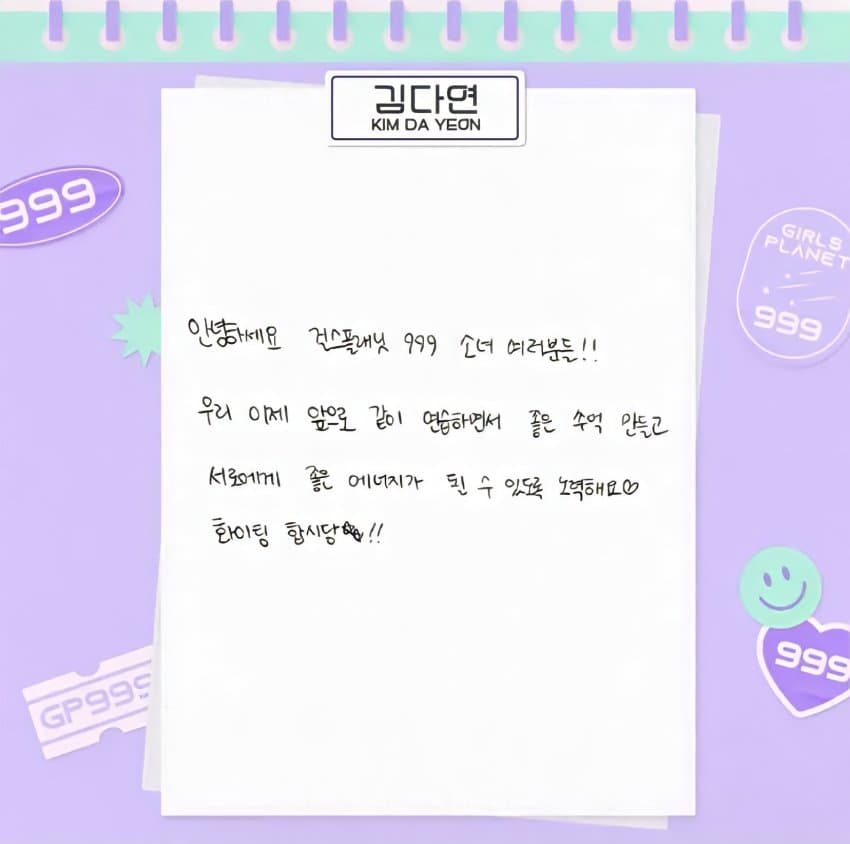 김다연
KIM DA YEON
999
GIRLS
PLANET
999
안녕하세요 걸스플래닛 999 소녀 여러분들!!
우리 이제 앞으로 같이 연습하면서 좋은 추억 만들고
서로에게 좋은 에너지가 될 수 있도록 노력해요♡
화이팅 합시당!!
999
GP999